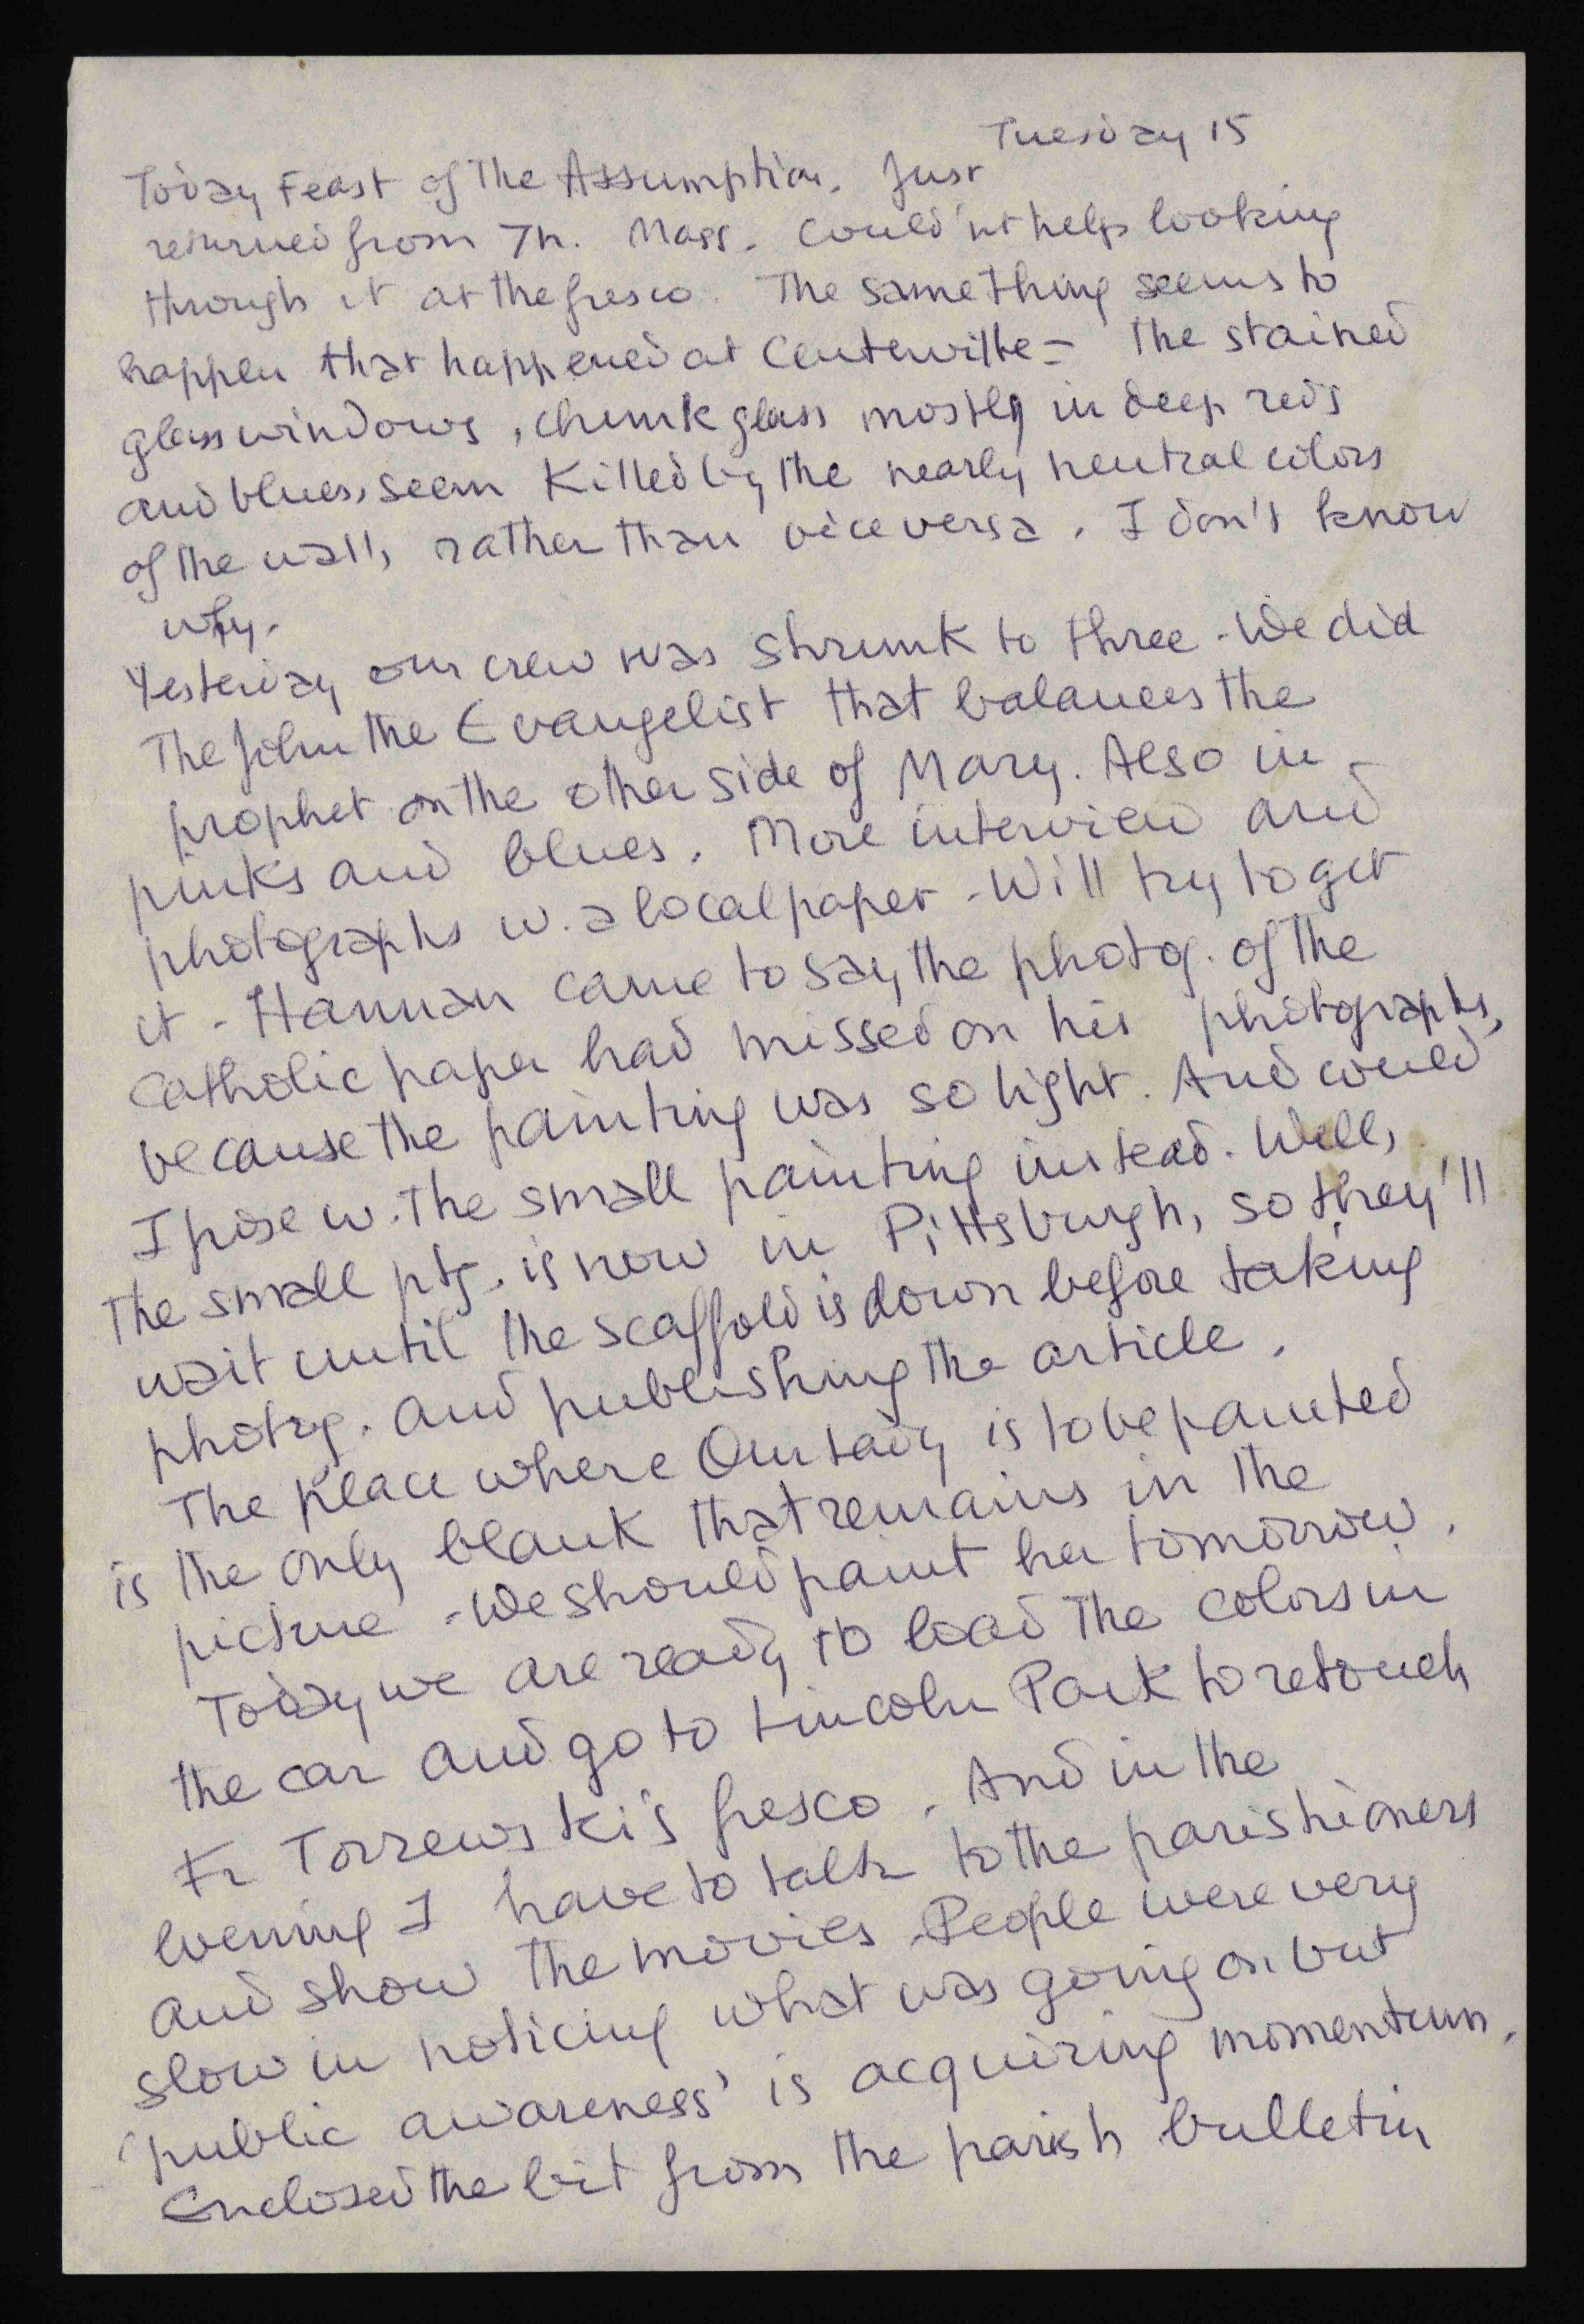 Tuesday 15
Today Feast of the Assumption. Just
returned from 7h. Mass. Could'nt help looking
through it at the fresco. The same thing seems to
happen that happened at Centerville - The stained
glass windows, chunk glass mostly in deep reds
and blues, seem killed by the nearly neutral colors
of the wall, rather than vice versa. I don't know
why.
Yesterday our crew was shrunk to three. We did
The John the Evangelist that balances the
prophet on the other side of Mary. Also in
pinks and blues. More interview and
photographs w. a local paper - Will try to get
it - Hannan came to say the photog. of the
Catholic paper had missed on his photographs,
because the painting was so light. And could
I pose w. the small painting instead. Well,
The small ptg. is now in Pittsburgh, so they'll
wait until the scaffold is down before taking
photog. and publishing the article.
The place where Our Lady is to be painted
is the only blank that remains in the
picture - We should paint her tomorrow.
Today we are ready to load the colors in
the car and go to Lincoln Park to retouch
Fr Torzewski's fresco. And in the
evening I have to talk to the parishioners
and show the movies. People were very
slow in noticing what was going on but
'public awareness' is acquiring momentum.
Enclosed the bit from the parish bulletin